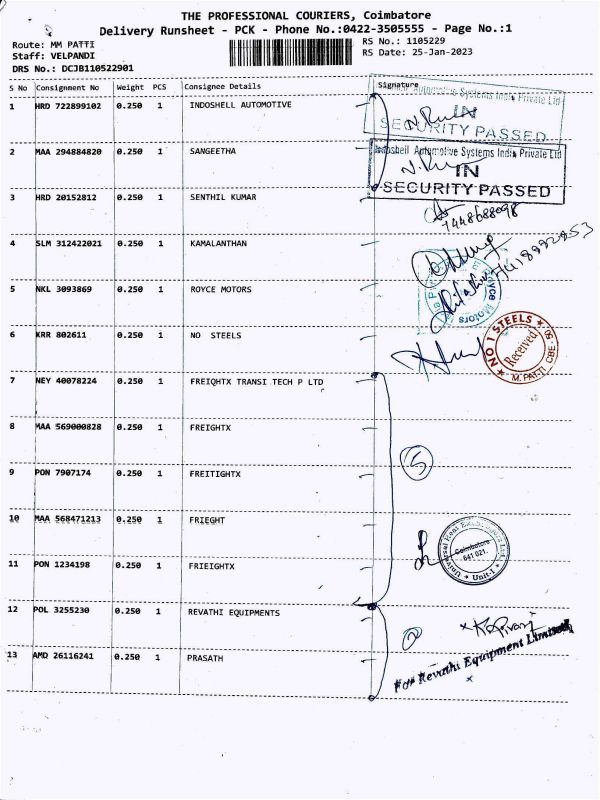 THE PROFESSIONAL COURIERS, Coimbatore
Delivery Runsheet - PCK - Phone No.:0422-3505555 - Page No.:1
Route: MM PATTI
RS No.: 1105229
Staff: VELPANDI
RS Date: 25-Jan-2023
DRS No.: DCJB110522901
S No Consignment No Weight PCS Consignee Details Signature
1 HRD 722899102 0.250 1 INDOSHELL AUTOMOTIVE
Automotive Systems India Private Ltd
IN
SECURITY PASSED
2 MAA 294884820 0.250 1 SANGEETHA
Indoshell Automotive Systems India Private Ltd
IN
SECURITY PASSED
3 HRD 20152812 0.250 1 SENTHIL KUMAR
7448688098
4 SLM 312422021 0.250 1 KAMALANTHAN
5 NKL 3093869 0.250 1 ROYCE MOTORS
Royce Motors
6 KRR 802611 0.250 1 NO STEELS
NO 1 STEELS
Received
M. PATTI, CBE - 50
7 NEY 40078224 0.250 1 FREIQHTX TRANSI TECH P LTD
8 MAA 569000828 0.250 1 FREIGHTX
9 PON 7907174 0.250 1 FREITIGHTX
5
10 MAA 568471213 0.250 1 FRIEGHT
Coimbatore
641 021.
Unit-1
11 PON 1234198 0.250 1 FRIEIGHTX
12 POL 3255230 0.250 1 REVATHI EQUIPMENTS
2
13 AMD 26116241 0.250 1 PRASATH
For Revathi Equipment Limited